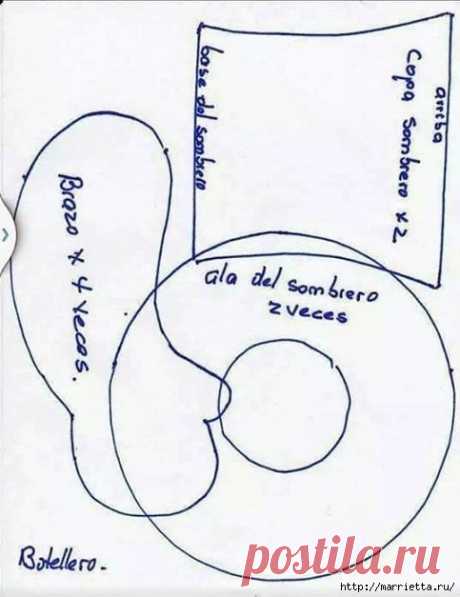 arriba
Copa sombrero x2
base del sombrero
ala del sombrero
2 veces
Brazo x 4 veces.
Botellero.
postila.ru
http://marrietta.ru/